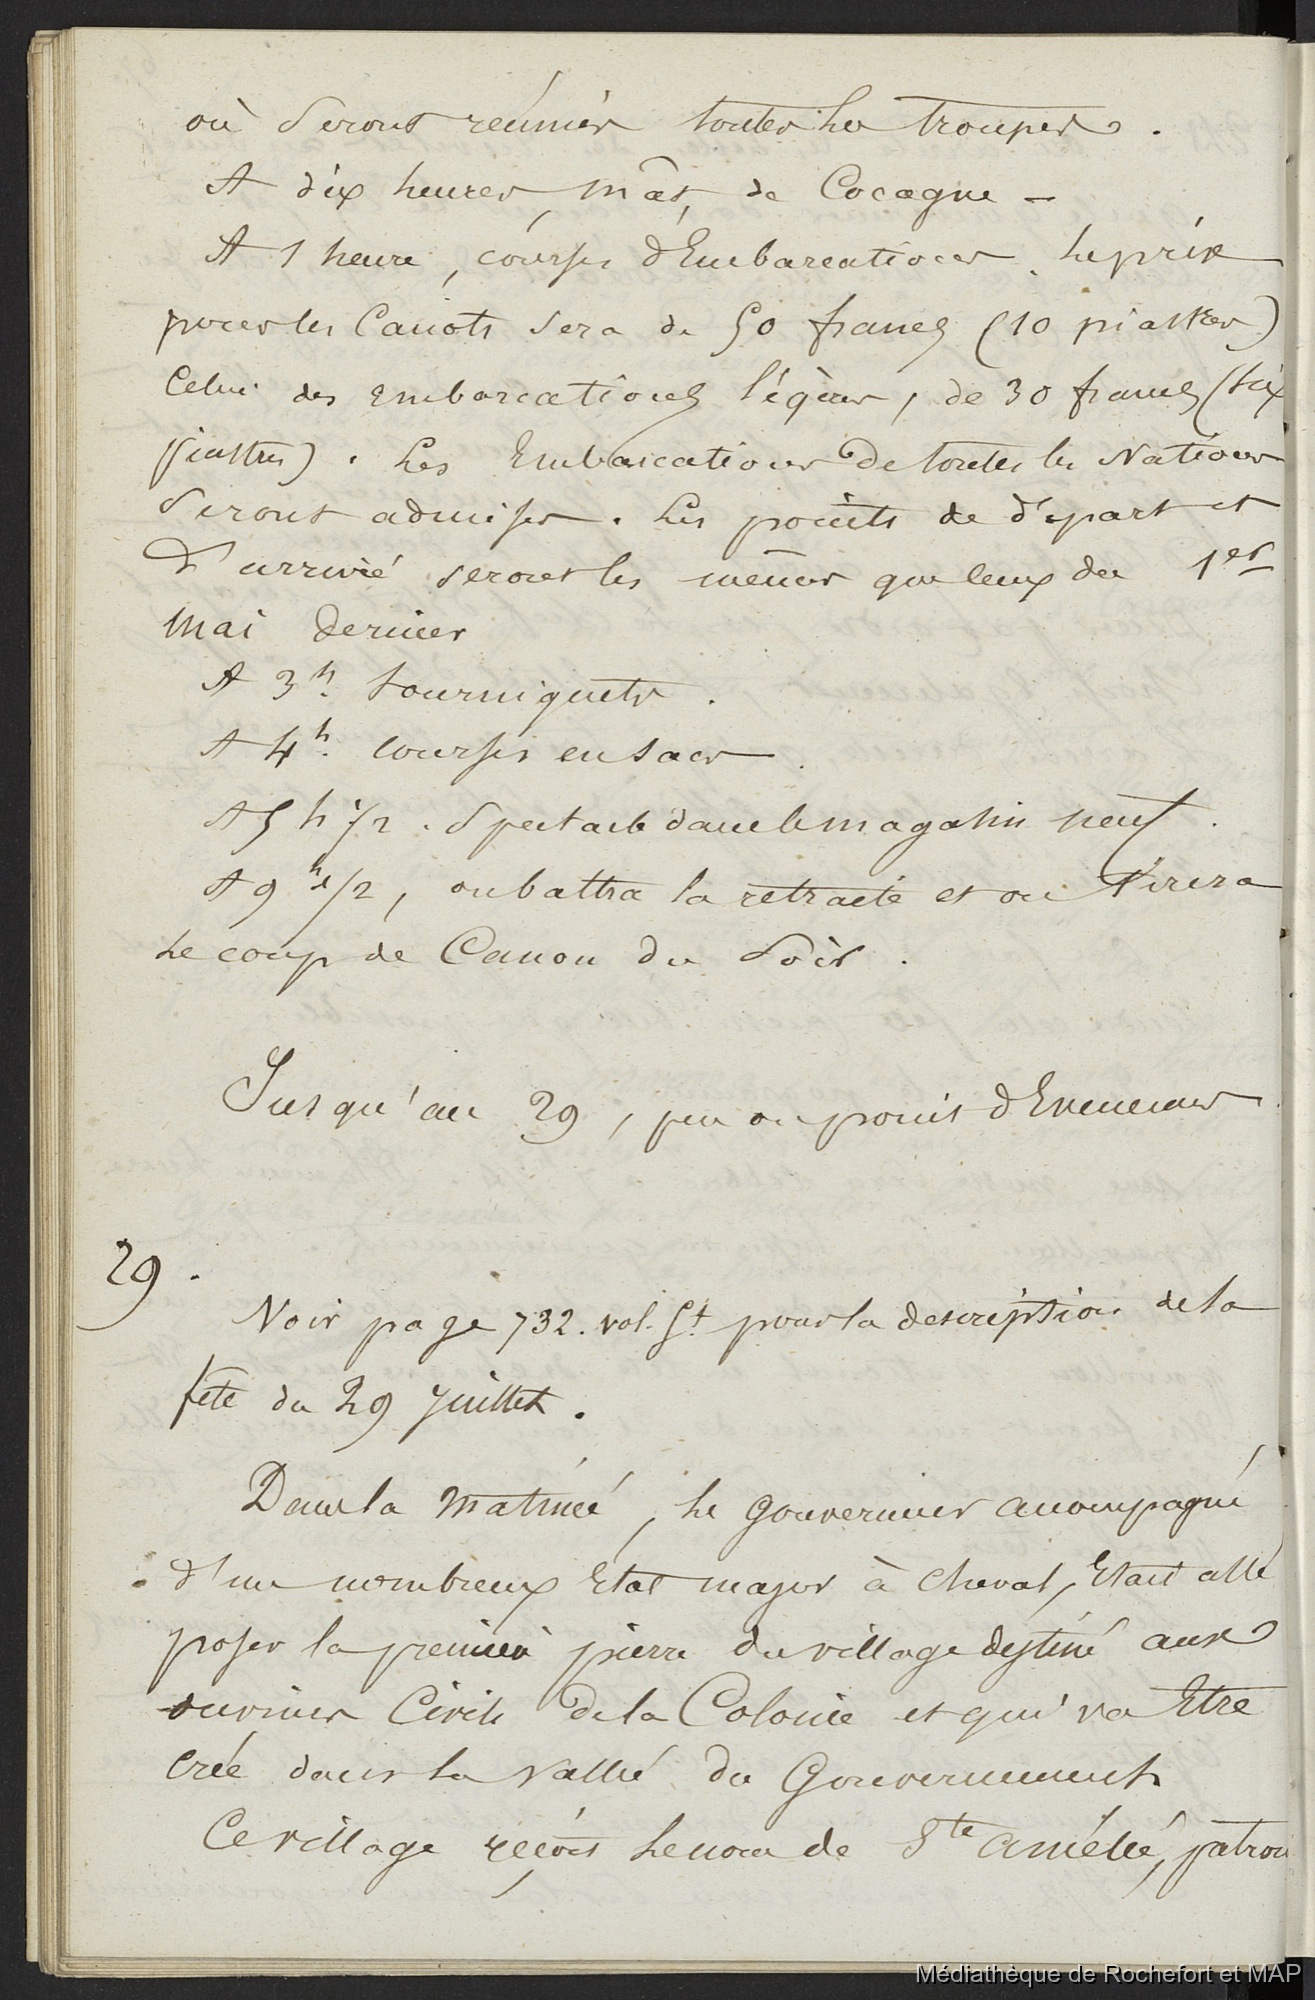 où seront réunies toutes les troupes.
A dix heures, mâts de Cocagne –
A 1 heure, courses d'Embarcations. Le prix
pour les Canots sera de 50 francs (10 piastres)
Celui des embarcations légères, de 30 francs (six
piastres). Les Embarcations de toutes les Nations
seront admises. Les points de départ et
d'arrivée seront les mêmes que ceux du 1er
Mai dernier
A 3h. tourniquets.
A 4h. courses en sacs.
A 5 h 1/2. Spectacle dans le magasin neuf.
A 9 h 1/2, on battra la retraite et on tirera
le coup de Canon du Soir.
Jusqu'au 29, peu ou point d'Evenemens.
29.
Voir page 732. vol. 5t pour la description de la
fête du 29 Juillet.
Dans la matinée, le gouverneur accompagné
d'un nombreux Etat major à cheval, Etait allé
poser la première pierre du village destiné aux
ouvriers Civils de la Colonie et qui va Etre
créé dans la vallée du Gouvernement
Ce village reçois le nom de Ste Amélie, patron
Médiathèque de Rochefort et MAP